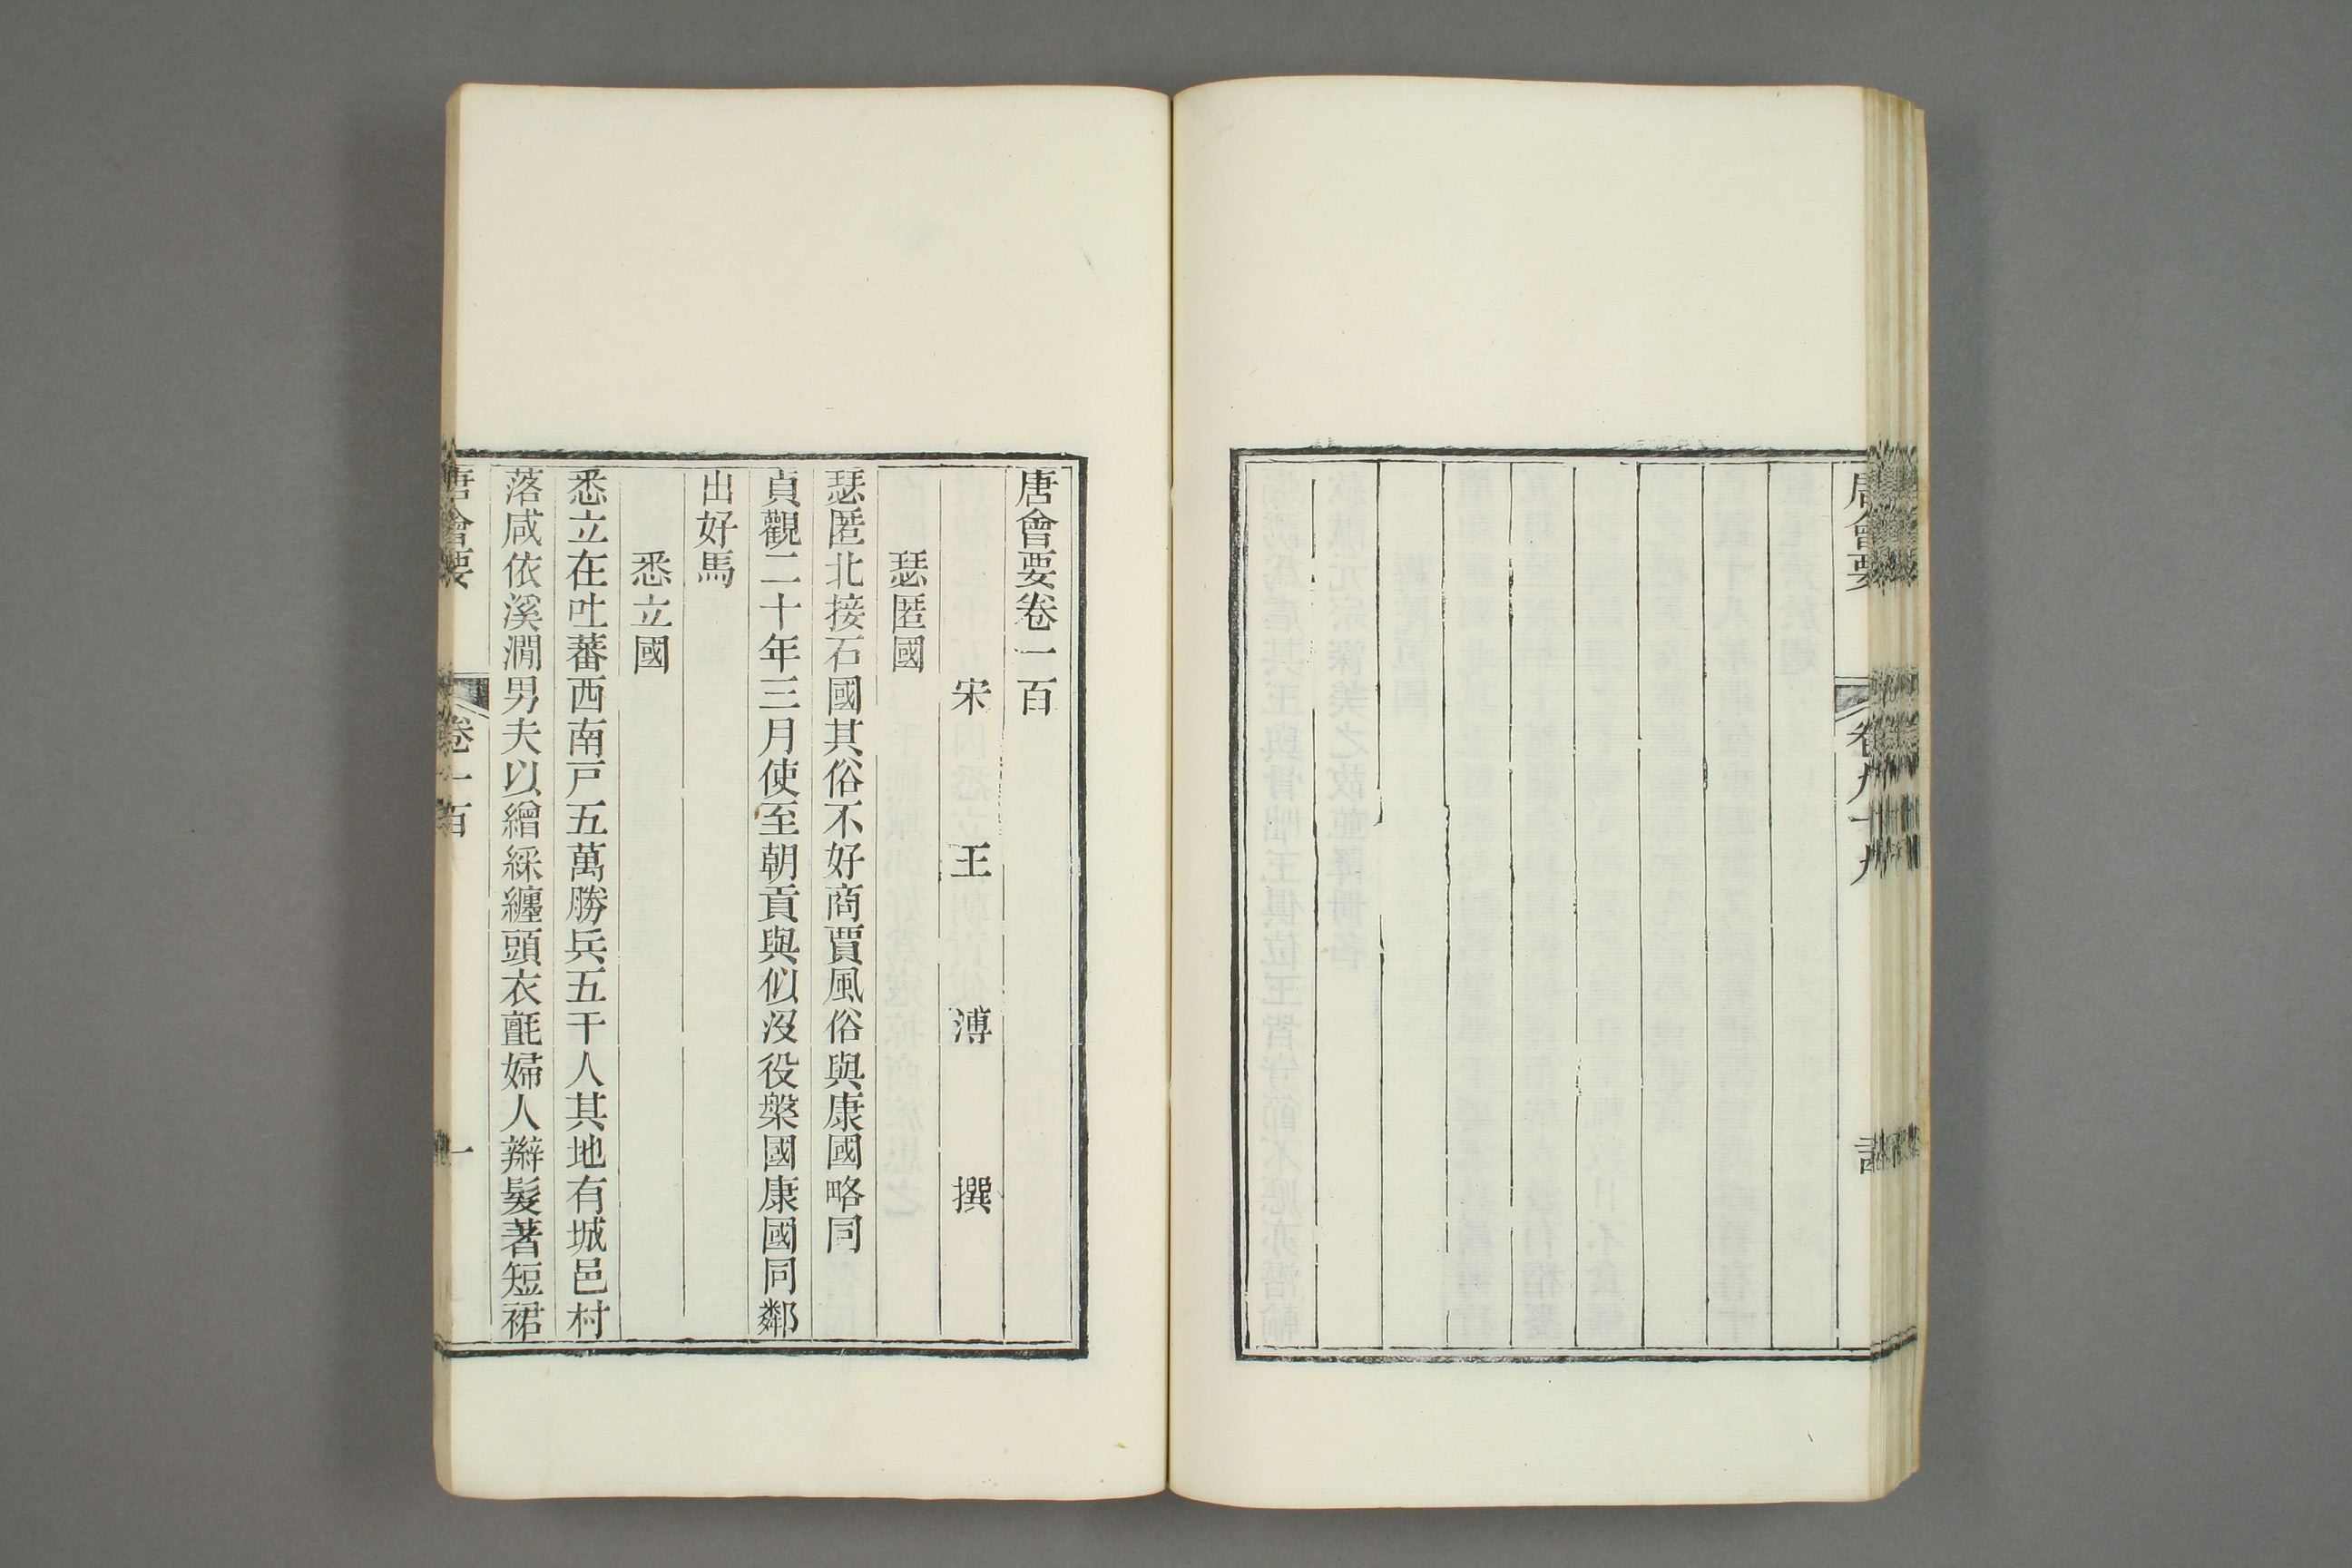 唐會要
卷九十九
唐會要卷一百
宋 王 溥 撰
瑟匿國
瑟匿北接石國其俗不好商賈風俗與康國略同
貞觀二十年三月使至朝貢與似沒役槃國康國同鄰
出好馬
悉立國
悉立在吐蕃西南戸五萬勝兵五千人其地有城邑村
落咸依溪澗男夫以繒綵纏頭衣氊婦人辮髮著短裙
唐會要
卷一百
一